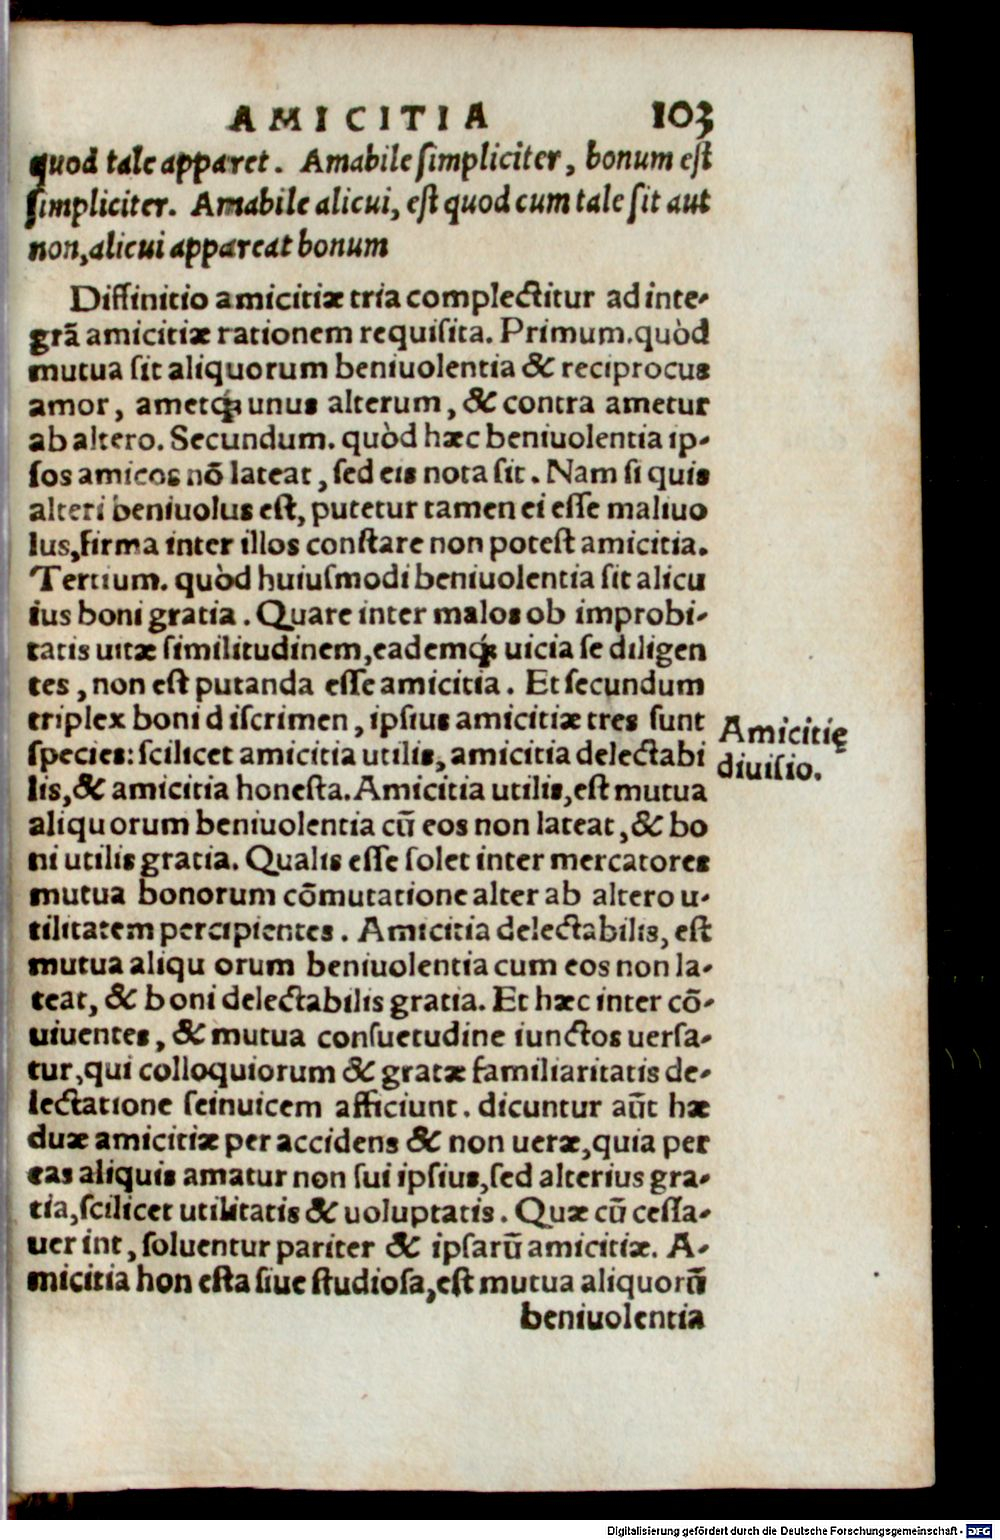 AMICITIA 103
quod tale apparet. Amabile simpliciter, bonum est
simpliciter. Amabile alicui, est quod cum tale sit aut
non, alicui appareat bonum
Diffinitio amicitiæ tria complectitur ad inte-
grā amicitiæ rationem requisita. Primum. quòd
mutua sit aliquorum beniuolentia & reciprocus
amor, ametq; unus alterum, & contra ametur
ab altero. Secundum. quòd hæc beniuolentia ip-
sos amicos nō lateat, sed eis nota sit. Nam si quis
alteri beniuolus est, putetur tamen ei esse maliuo
lus, firma inter illos constare non potest amicitia.
Tertium. quòd huiusmodi beniuolentia sit alicu
ius boni gratia. Quare inter malos ob improbi-
tatis uitæ similitudinem, eademq; uicia se diligen
tes, non est putanda esse amicitia. Et secundum
triplex boni discrimen, ipsius amicitiæ tres sunt
species: scilicet amicitia utilis, amicitia delectabi
lis, & amicitia honesta. Amicitia utilis, est mutua
aliquorum beniuolentia cū eos non lateat, & bo
ni utilis gratia. Qualis esse solet inter mercatores
mutua bonorum cōmutatione alter ab altero u-
tilitatem percipientes. Amicitia delectabilis, est
mutua aliqu orum beniuolentia cum eos non la-
teat, & boni delectabilis gratia. Et hæc inter cō-
uiuentes, & mutua consuetudine iunctos uersa-
tur, qui colloquiorum & gratæ familiaritatis de-
lectatione seinuicem afficiunt. dicuntur aūt hæ
duæ amicitiæ per accidens & non ueræ, quia per
eas aliquis amatur non sui ipsius, sed alterius gra-
tia, scilicet utilitatis & uoluptatis. Quæ cū cessa-
uer int, soluentur pariter & ipsarū amicitiæ. A-
micitia hon esta siue studiosa, est mutua aliquorū
beniuolentia
Amicitię
diuisio.
Digitalisierung gefördert durch die Deutsche Forschungsgemeinschaft - DFG